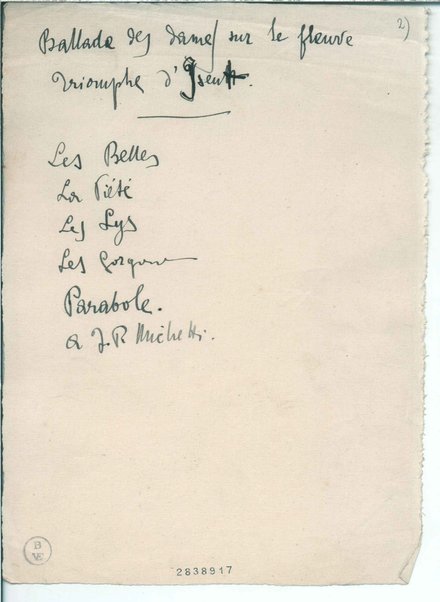 2)
Ballade des dames sur le fleuve
Triomphe d'Iseult.
Les Belles
La Piété
Les Lys
Les Gorgone
Parabole.
a J. P. Michetti.
B
VE
2838917